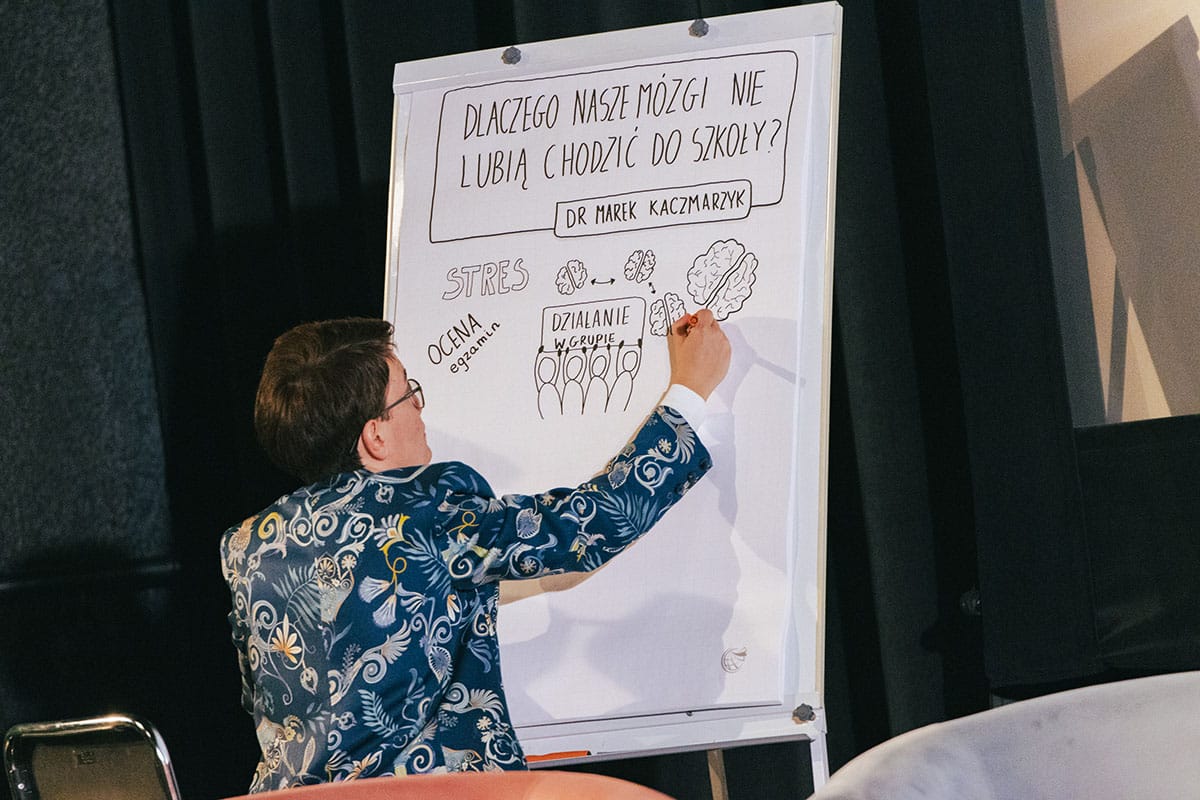 DLACZEGO NASZE MÓZGI NIE
LUBIĄ CHODZIĆ DO SZKOŁY?
DR MAREK KACZMARZYK
STRES
OCENA
egzamin
DZIAŁANIE
W GRUPIE